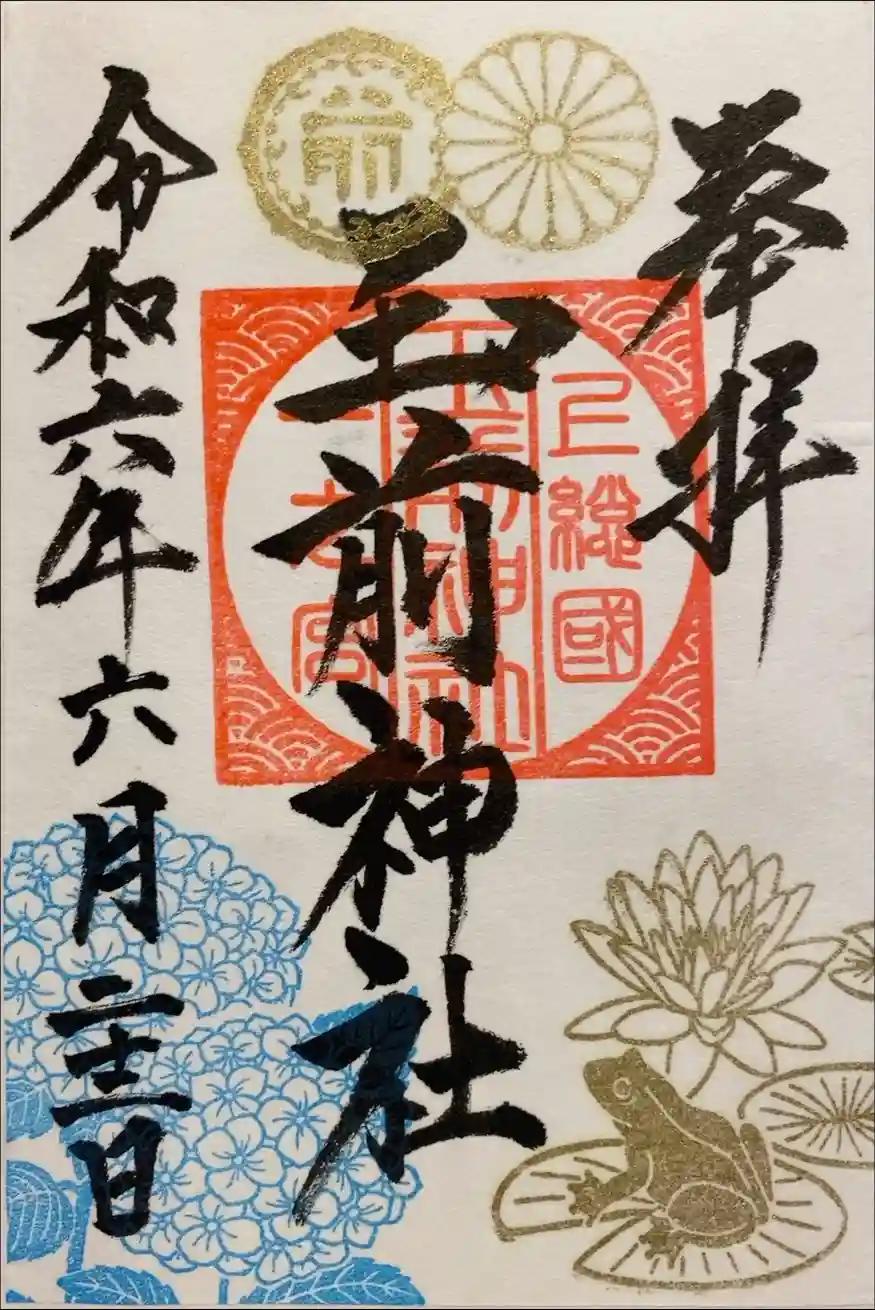 奉拝
上總國
玉前神社
玉前神社
一之宮
令和六年六月二十二日